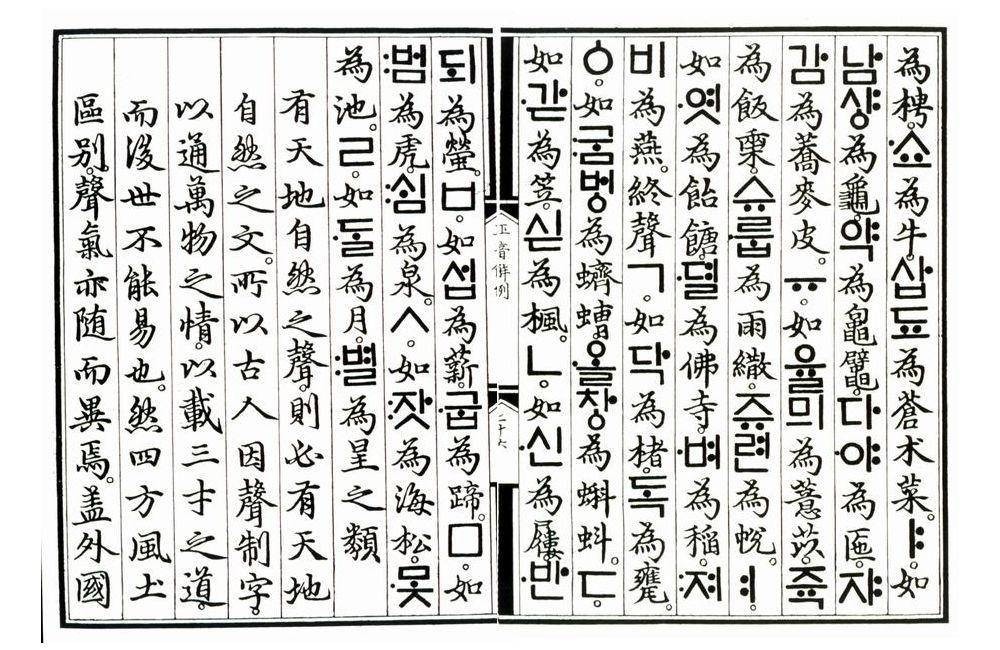 為梬。쇼為牛。삽됴為蒼朮菜。ㅑ如
남샹為龜。약為𪓟鼊。다야為匜。쟈
감為蕎麥皮。ㅠ如율믜為薏苡。쥭
為飯𣖄。슈룹為雨繖。쥬련為帨。ㅕ
如·엿為飴餹。·뎔為佛寺。·벼為稻。:져
비為燕。終聲ㄱ。如닥為楮。독為甕。
ㆁ。如:굼벙為蠐螬。·올창為蝌蚪。ㄷ。
如·갇為笠。싣為楓。ㄴ。如·신為屨。·반
正音解例
二十六
되為螢。ㅂ。如섭為薪。·굽為蹄。ㅁ。如
:범為虎。:심為泉。ㅅ。如:잣為海松。·못
為池。ㄹ。如·ᄃᆞᆯ為月。:별為星之類
有天地自然之聲。則必有天地
自然之文。所以古人因聲制字。
以通萬物之情。以載三才之道。
而後世不能易也。然四方風土
區別。聲氣亦隨而異焉。蓋外國